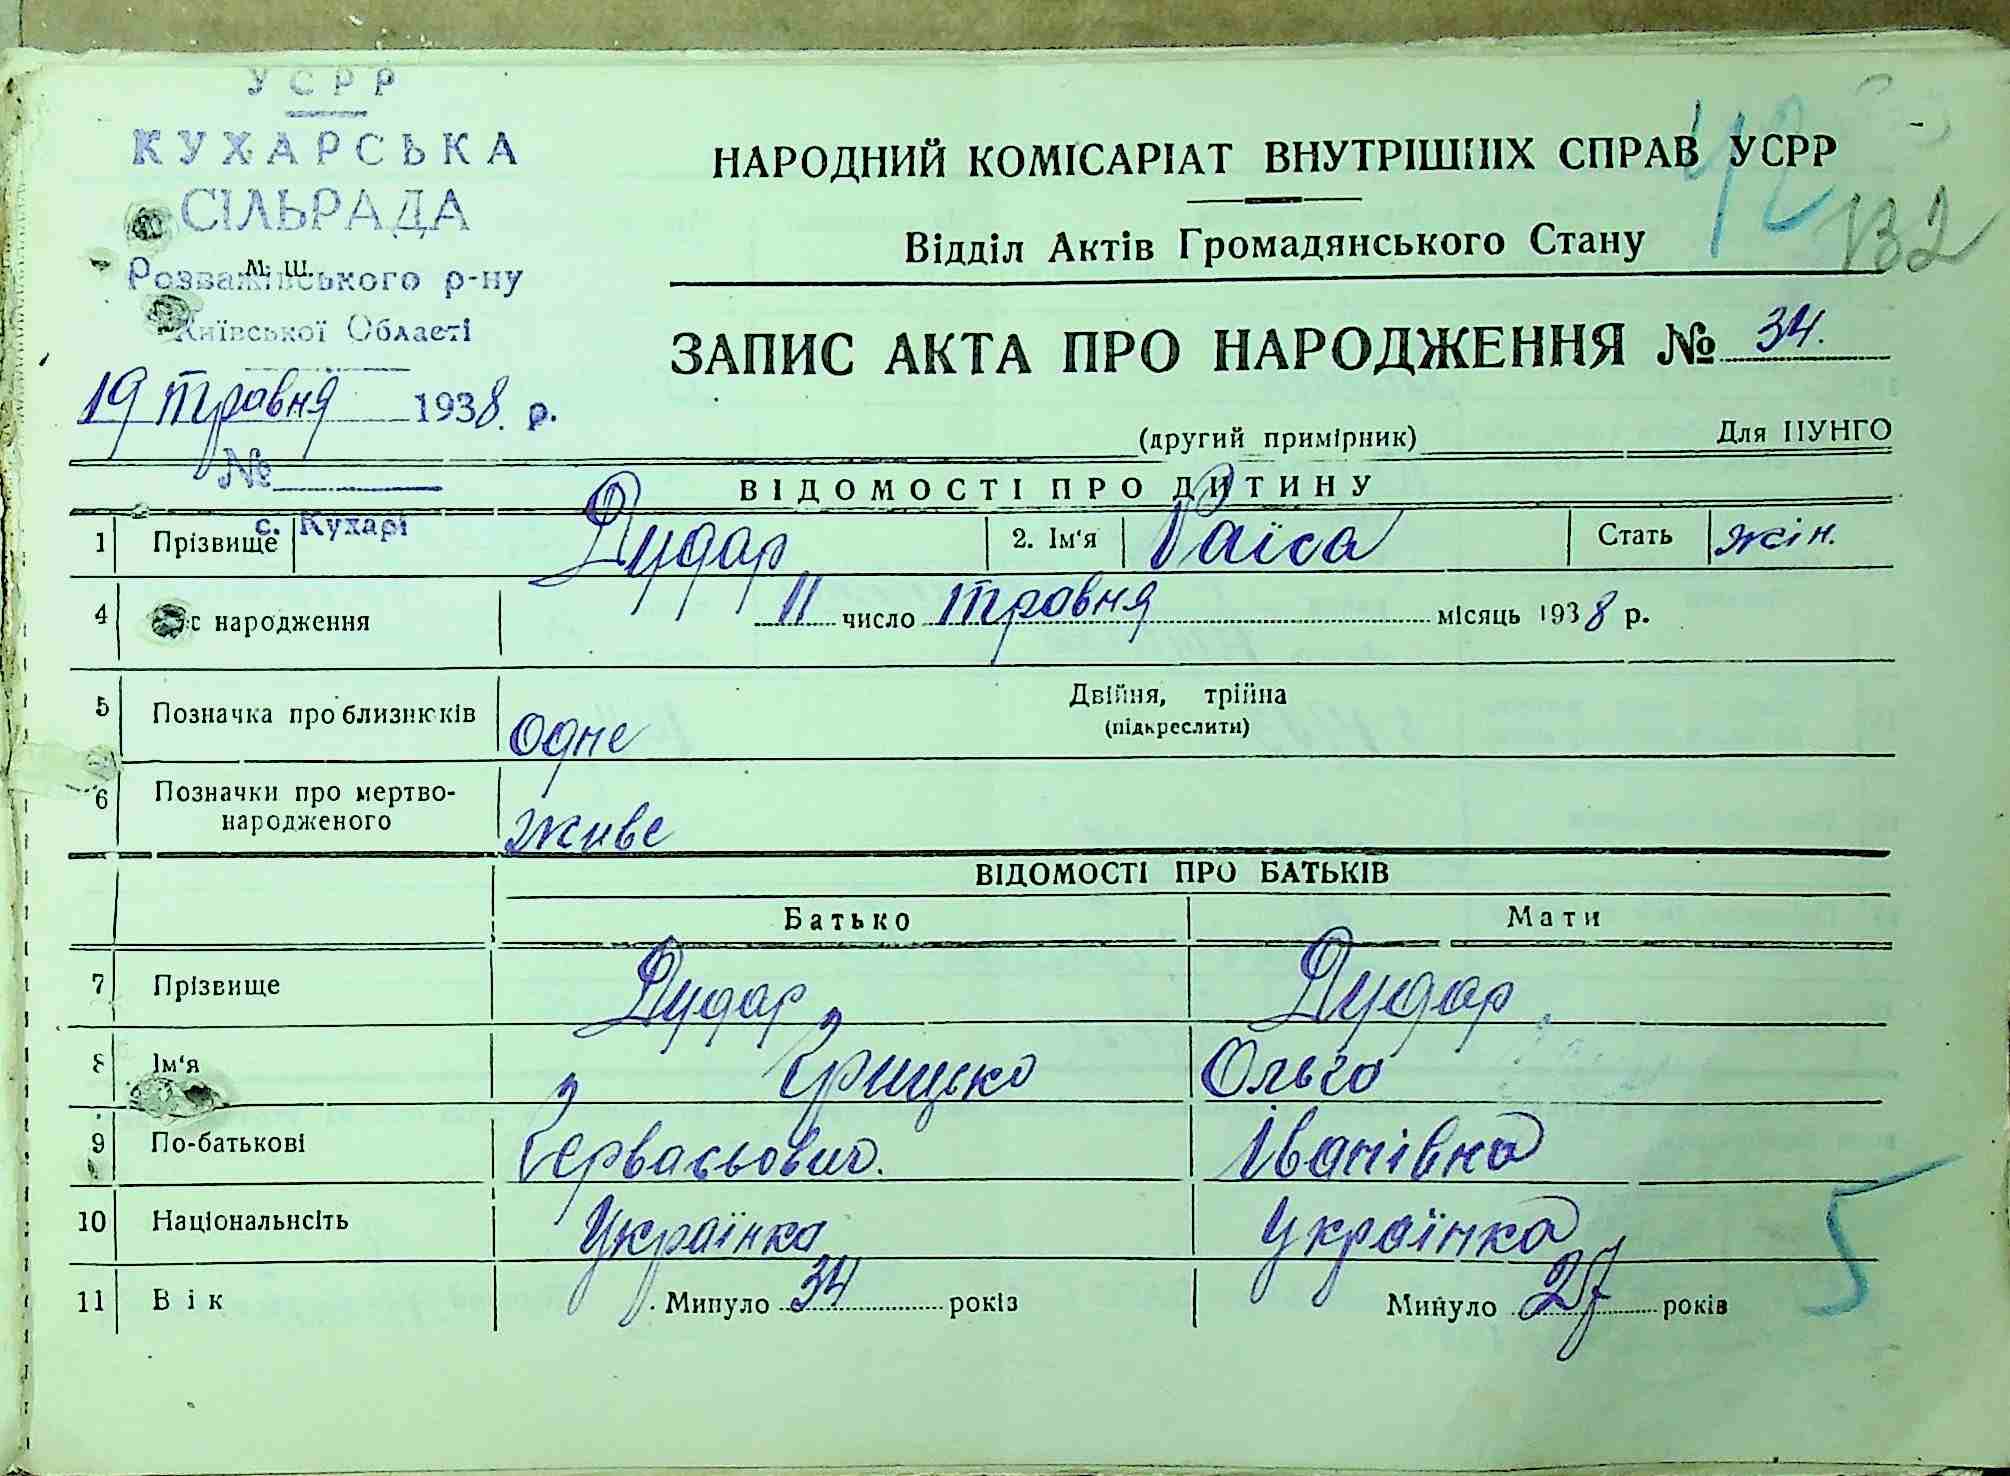 УСРР
КУХАРСЬКА
СІЛЬРАДА
м. ш.
Розважівського р-ну
Київської Області
19 травня 1938. р.
№
с. Кухарі
42
132
НАРОДНИЙ КОМІСАРІАТ ВНУТРІШНІХ СПРАВ УСРР
Відділ Актів Громадянського Стану
ЗАПИС АКТА ПРО НАРОДЖЕННЯ № 34.
(другий примірник) Для ЦУНГО
ВІДОМОСТІ ПРО ДИТИНУ
1 Прізвище Дудар 2. Ім'я Раїса Стать жін.
4 Час народження 11 число травня місяць 1938 р.
5 Позначка про близнюків одне Двійня, трійна
(підкреслити)
6 Позначки про мертво-
народженого живе
ВІДОМОСТІ ПРО БАТЬКІВ
Батько Мати
7 Прізвище Дудар Дудар
8 Ім'я Грицько Ольга
9 По-батькові Гервасьович. Іванівна
10 Національність Українка Українка
11 Вік Минуло 34 років Минуло 27 років
5